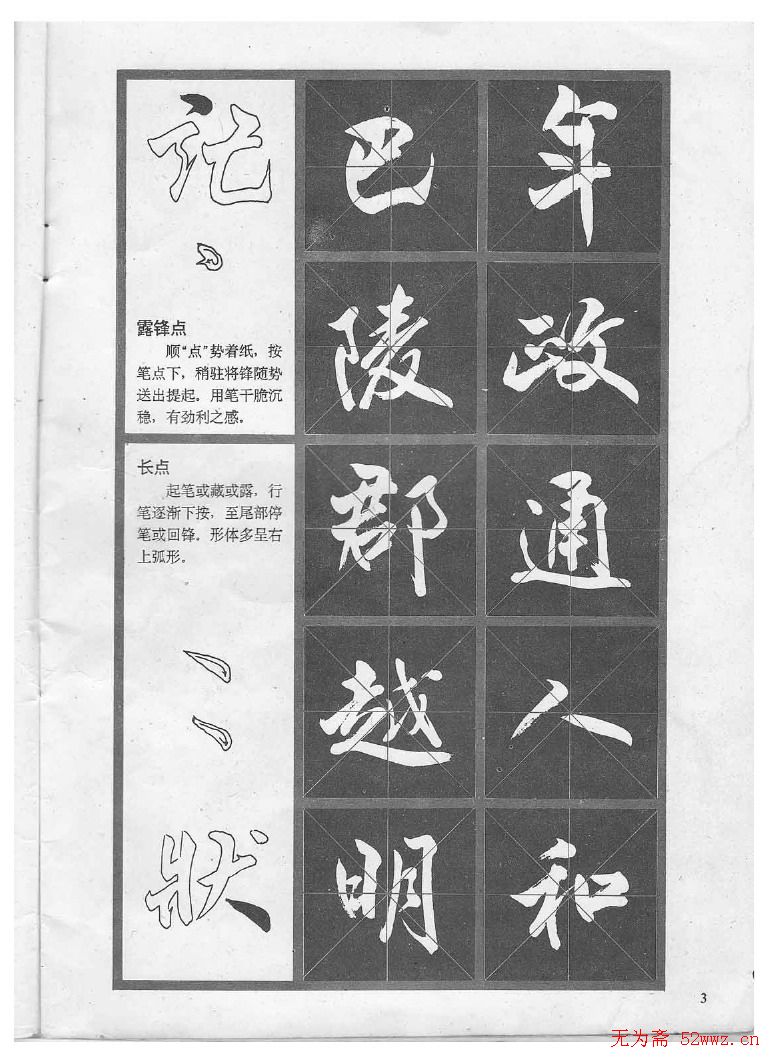 露锋点
顺“点”势着纸，按
笔点下，稍驻将锋随势
送出提起。用笔干脆沉
稳，有劲利之感。
长点
起笔或藏或露，行
笔逐渐下按，至尾部停
笔或回锋。形体多呈右
上弧形。
狀
巴陵郡越明
年政通人和
3
无为斋 52wwz.cn